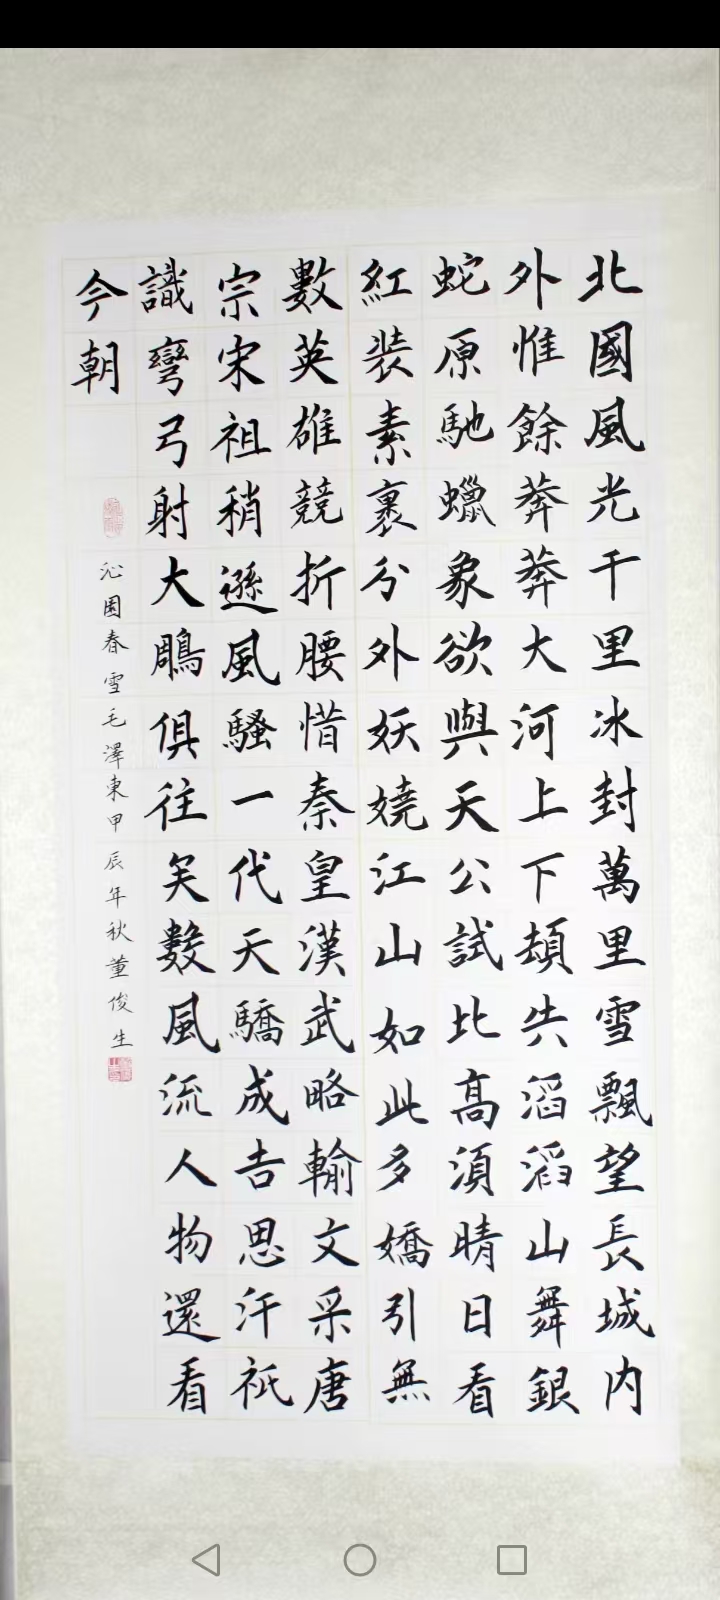 北國風光千里冰封萬里雪飄望長城内
外惟餘莽莽大河上下頓失滔滔山舞銀
蛇原馳蠟象欲與天公試比高須晴日看
紅装素裹分外妖嬈江山如此多嬌引無
數英雄競折腰惜秦皇漢武略輸文采唐
宗宋祖稍遜風騷一代天驕成吉思汗祇
識彎弓射大鵰俱往矣數風流人物還看
今朝
沁園春雪毛澤東甲辰年秋董俊生